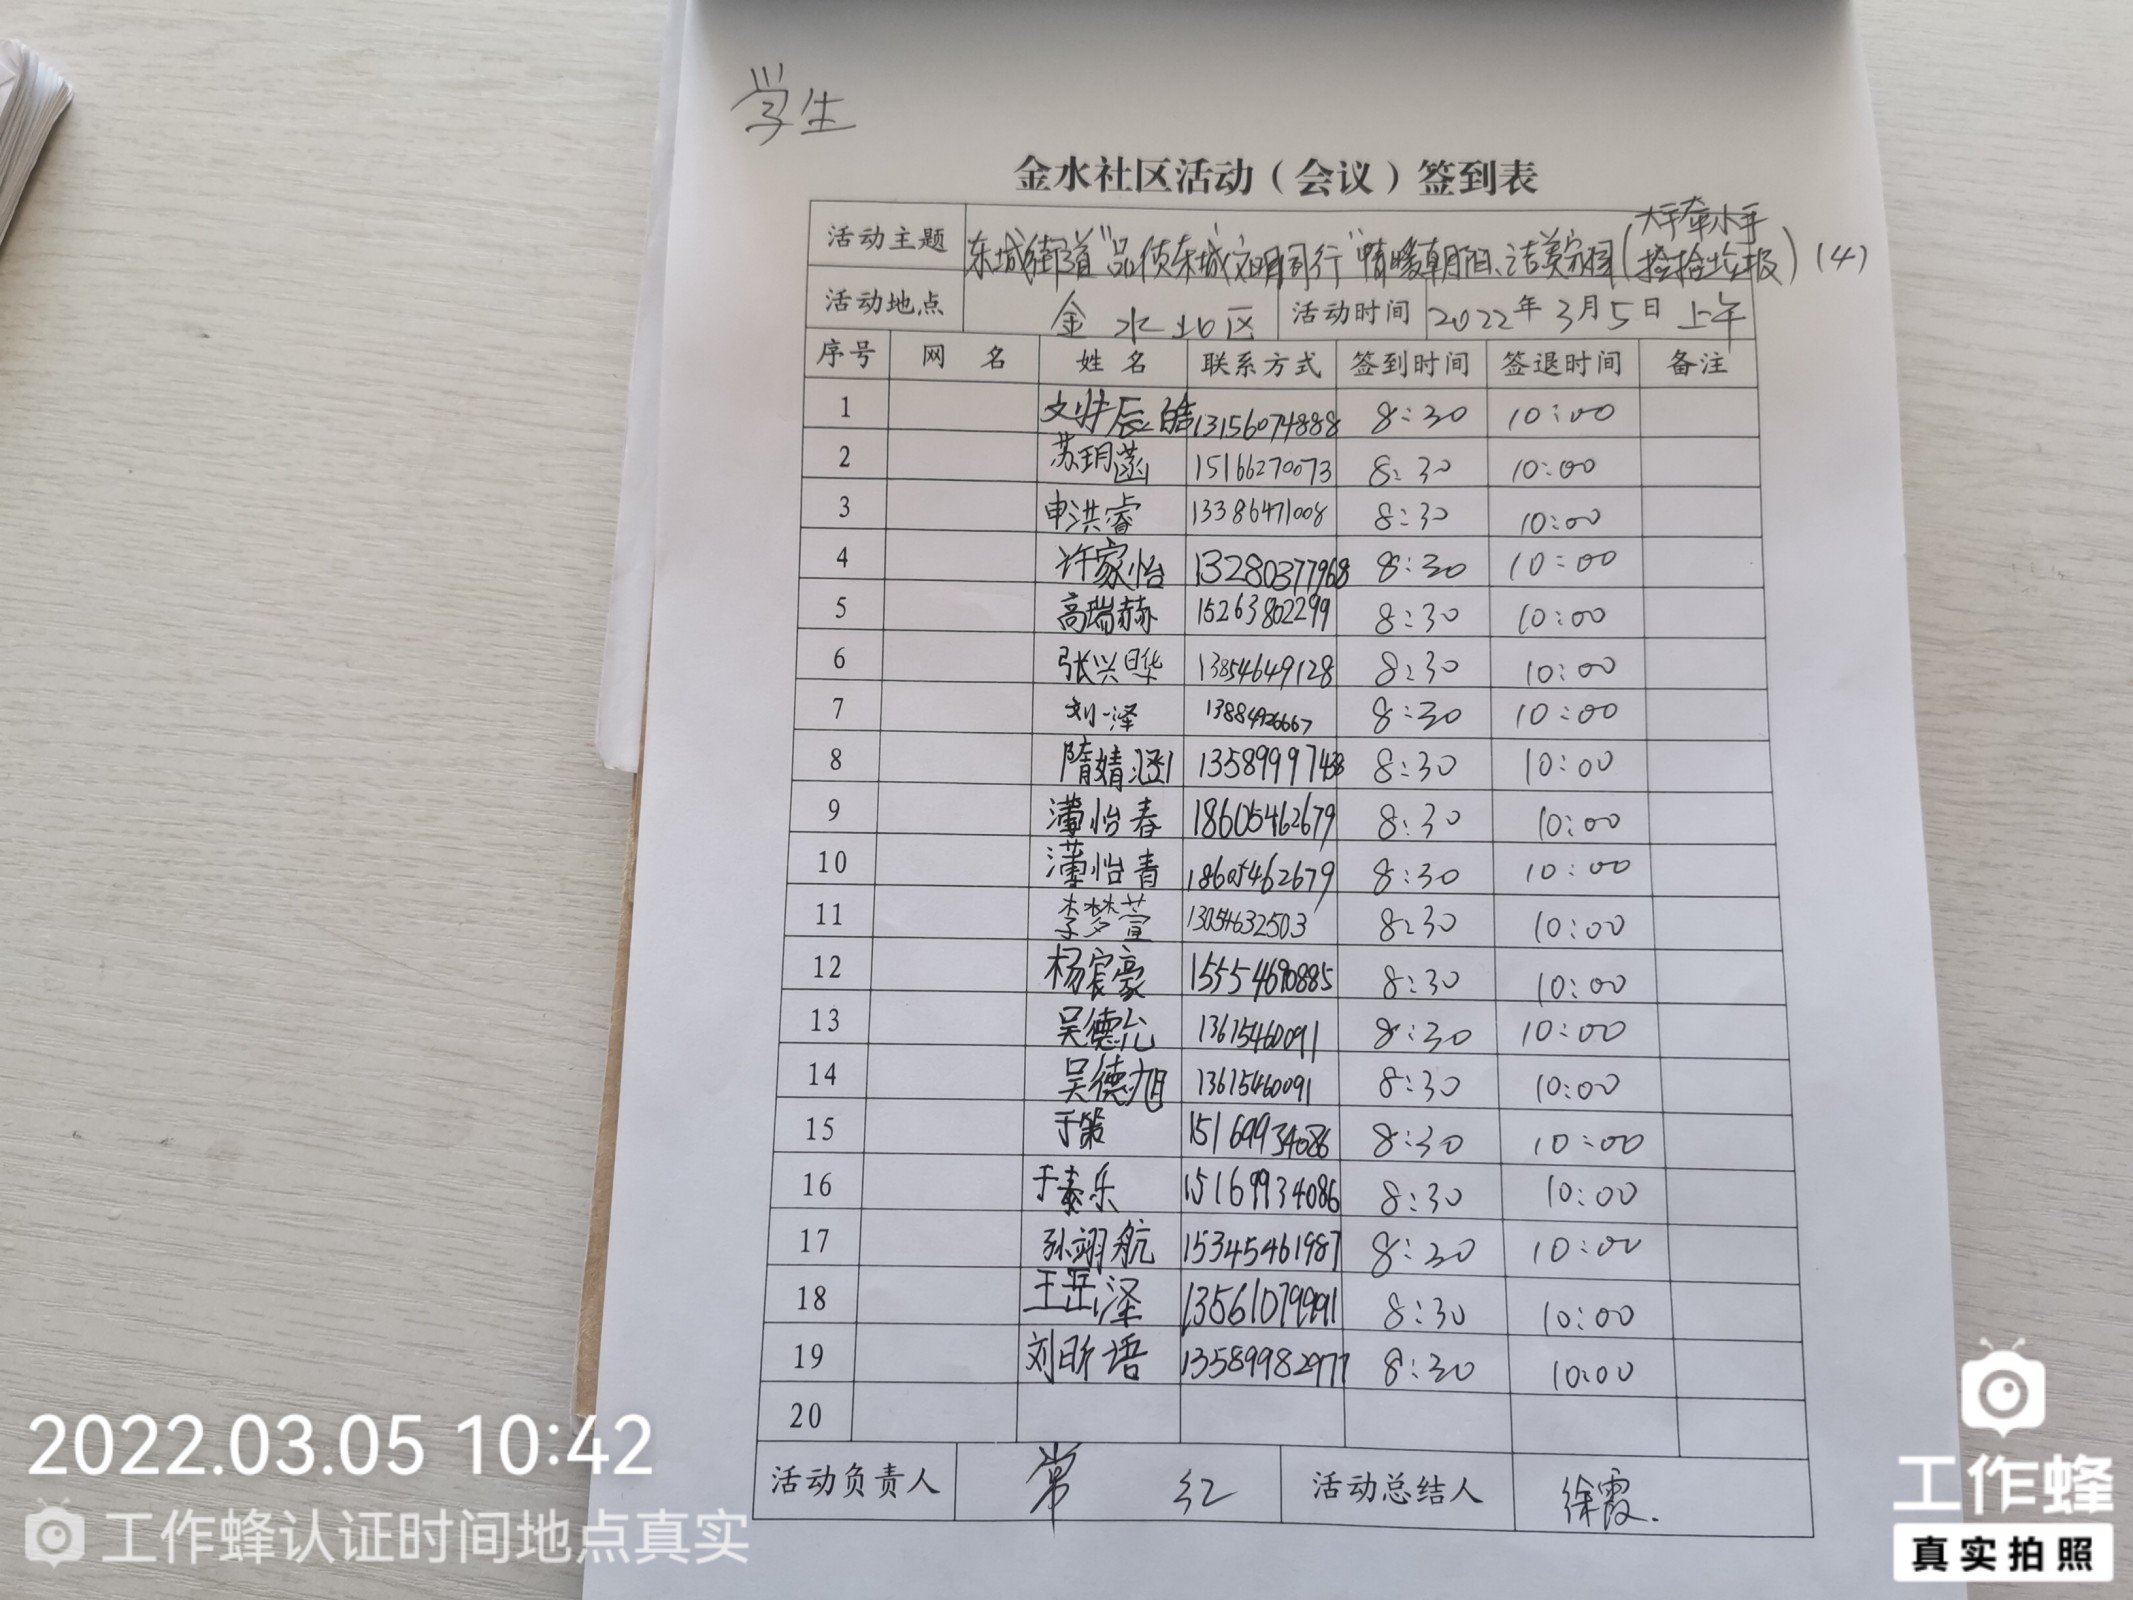 学生
金水社区活动（会议）签到表
大手牵小手
活动主题 东城街道"品质东城文明同行"情暖朝阳、洁美家园（捡拾垃圾）（4）
活动地点 金水北区 活动时间 2022年3月5日上午
序号 网名 姓名 联系方式 签到时间 签退时间 备注
1 辰皓 13156074888 8:30 10:00
2 苏玥菡 15166270073 8:30 10:00
3 申洪睿 13386471008 8:30 10:00
4 许家怡 13280377968 8:30 10:00
5 高瑞赫 15263802299 8:30 10:00
6 张兴晔 13854649128 8:30 10:00
7 刘一泽 13884926667 8:30 10:00
8 隋婧涵 13589997438 8:30 10:00
9 怡春 18605462679 8:30 10:00
10 怡青 18605462679 8:30 10:00
11 李梦萱 13054632503 8:30 10:00
12 杨宸豪 15554690885 8:30 10:00
13 吴德允 13615460091 8:30 10:00
14 吴德旭 13615460091 8:30 10:00
15 于策 15169934086 8:30 10:00
16 于泰乐 15169934086 8:30 10:00
17 孙翊航 15345461987 8:30 10:00
18 王泽 13561079991 8:30 10:00
19 刘昕语 13589982977 8:30 10:00
20
活动负责人 常红 活动总结人 徐霞.
2022.03.05 10:42
工作蜂认证时间地点真实
工作蜂
真实拍照